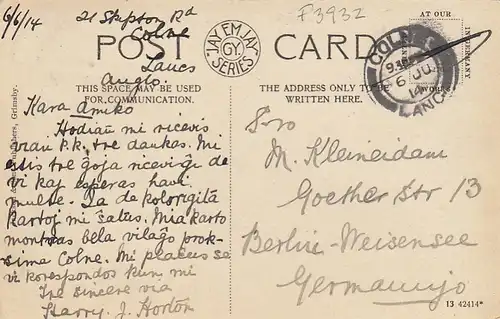 6/6/14
21 Skipton Rd
Colne
Lancs
Anglo.
F3932
POST CARD
JAY EM JAY
GY.
SERIES
AT OUR
COLNE
6 JU
14
LANCS
THIS SPACE MAY BE USED
FOR COMMUNICATION.
THE ADDRESS ONLY TO BE
WRITTEN HERE.
Publishers, Grimsby.
Kara Amiko
Hodiaŭ mi ricevis
vian P.K. tre dankas. Mi
estis tre ĝoja ricevigi de
vi kaj esperas havi
multe. La de kolorigitâ
kartoj mi ŝatas. Mia karto
montras bela vilaĝo prok-
sima Colne. Mi placus se
vi korespondos kun mi
Tre sincere via
Harry. J. Horton
S-ro
M. Kleineidam
Goether Str 13
Berlin-Weisensee
Germanujo
13 42414*